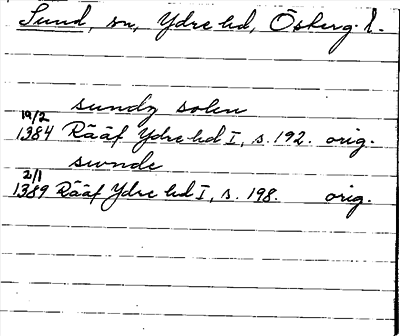 Sund, sn, Ydre hd, Öskerg. l.
sundz sokn
19/2
1384 Rääf Ydre hd I, s. 192. orig.
swnde
2/1
1389 Rääf Ydre hd I, s. 198. orig.